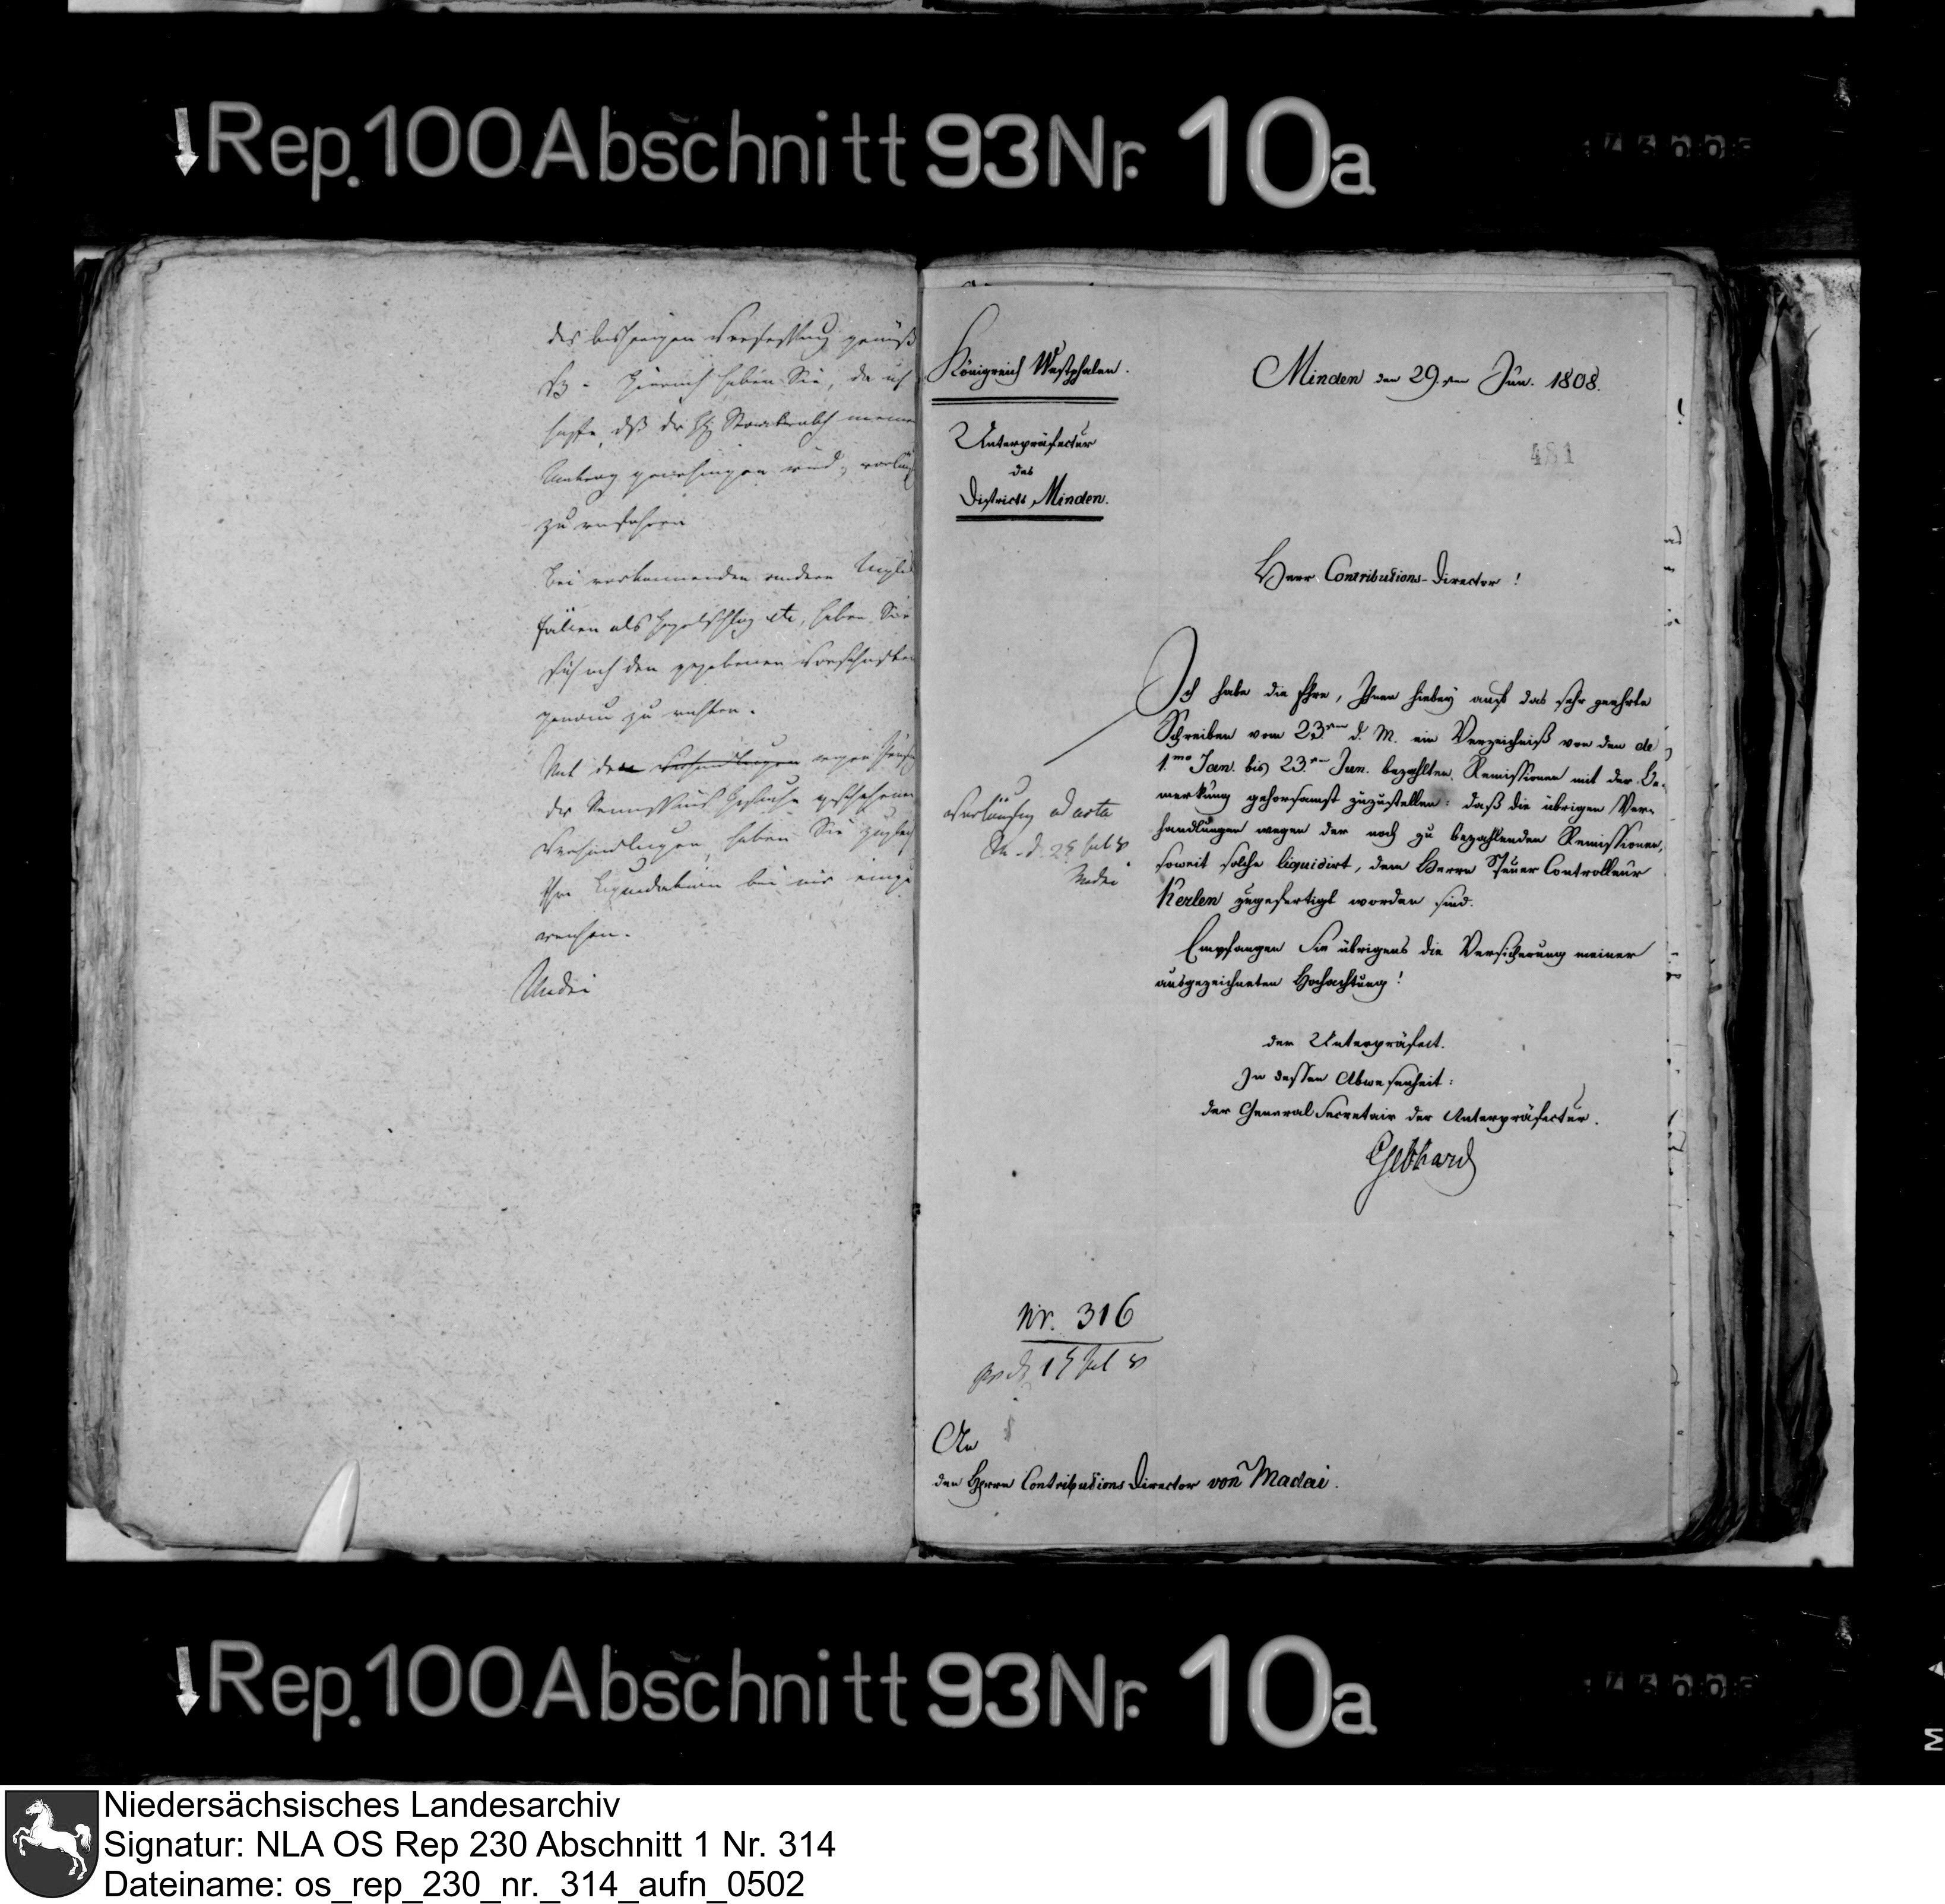 Rep. 100 Abschnitt 93 Nr. 10a
des bisherigen Verfassung gemäß
Hiernach haben Sie, da ich
hoffe, daß der H. Staatsrath meinen
Antrag genehmigen wird,
zu verfahren
Bei vorkommenden andern Unglücks
fällen als Hagelschlag etc, haben Sie
sich nach den gegebenen Vorschriften
genau zu richten.
Mit den Verhandlungen wegen
der Remissions Gesuche geschehenen
Verhandlungen, haben Sie zugleich
Ihre Liquidation bei mir einzu
reichen.
Madai
Königreich Westphalen.
Unterpräfectur
des
Districts Minden.
Minden den 29.ten Jun. 1808.
481
Herr Contributions-Director!
Ich habe die Ehre, Ihnen hiebey auf das sehr geehrte
Schreiben vom 23.ten d. M. ein Verzeichniß von den de
1.mo Jan. bis 23.ten Jun. bezahlten Remissionen mit der Be-
merkung gehorsamst zuzustellen: daß die übrigen Ver-
handlungen wegen der noch zu bezahlenden Remissionen,
soweit solche liquidirt, dem Herrn Steuer Controlleur
Kerlen zugefertigt worden sind.
Empfangen Sie übrigens die Versicherung meiner
ausgezeichneten Hochachtung!
der Unterpräfect.
In dessen Abwesenheit:
der General Secretair der Unterpräfectur.
Gebhard
vorläufig ad acta
Jul 8
Madai
Nr. 316
Jul 8
An
den Herrn Contributions Director von Madai.
Rep. 100 Abschnitt 93 Nr. 10a
M
Niedersächsisches Landesarchiv
Signatur: NLA OS Rep 230 Abschnitt 1 Nr. 314
Dateiname: os_rep_230_nr._314_aufn_0502